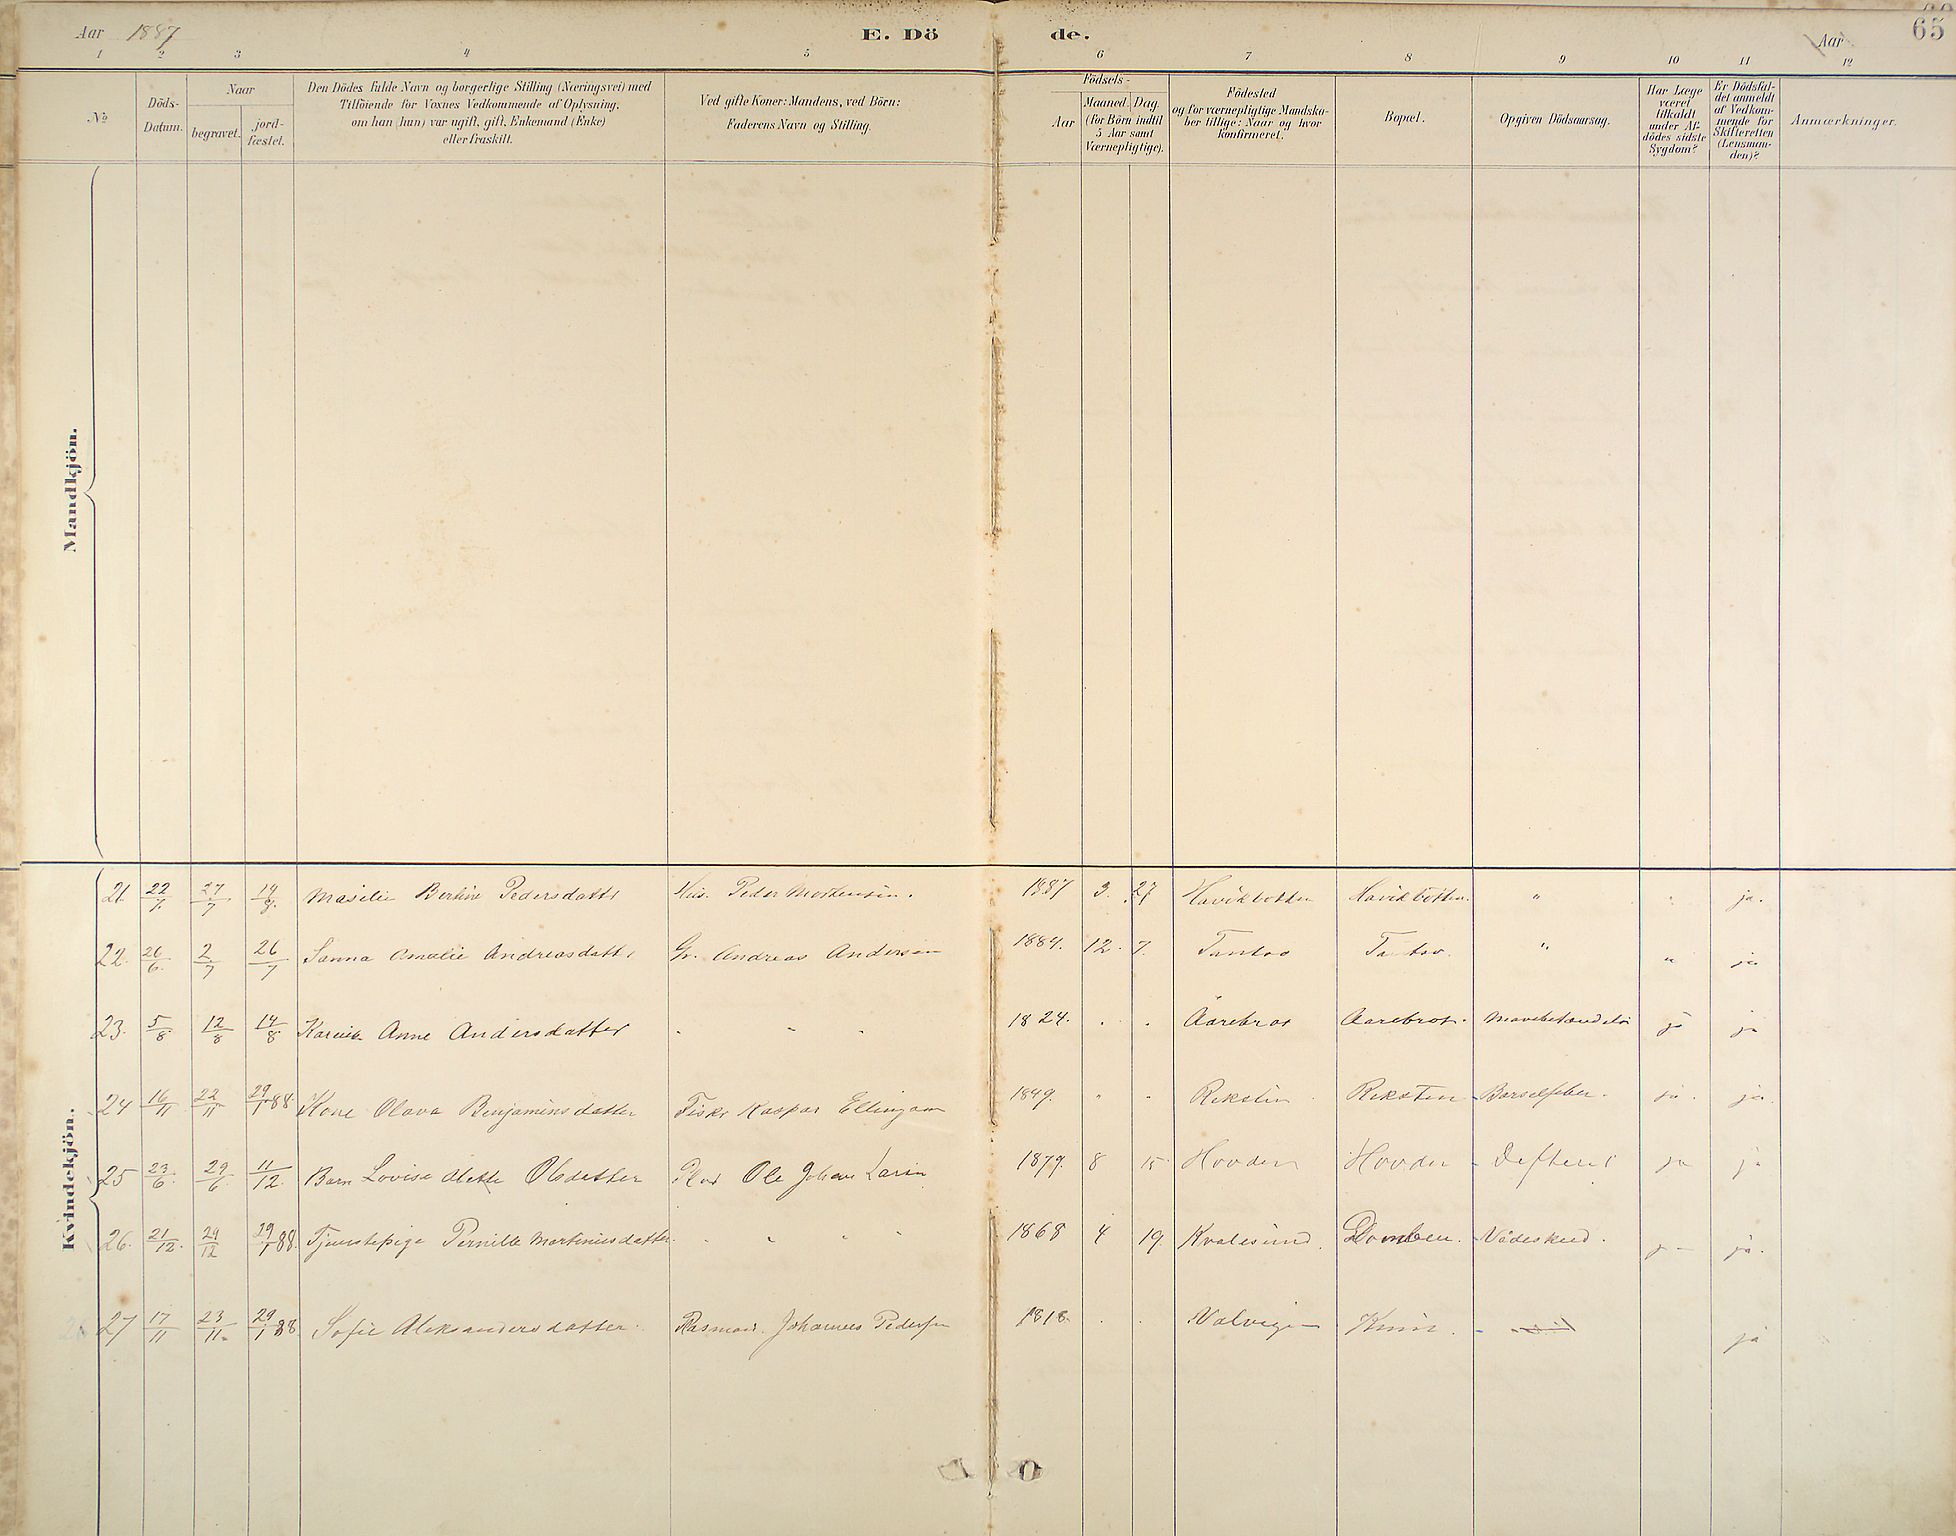 Aar 1887 E. Dö de. Aar 65
1 2 3 4 5 6 7 8 9 10 11 12
№
Döds-
Datum.
Naar
begravet.
jord-
fæstet.
Den Dödes fulde Navn og borgerlige Stilling (Næringsvei) med
Tilföiende for Voxnes Vedkommende af Oplysning,
om han (hun) var ugift, gift, Enkemand (Enke)
eller fraskilt.
Ved gifte Koner: Mandens, ved Börn:
Faderens Navn og Stilling.
Födsels-
Aar
Maaned. Dag.
(for Börn indtil
5 Aar samt
Værnepligtige).
Födested
og for værnepligtige Mandska-
ber tillige: Naar og hvor
konfirmeret.
Bopæl.
Opgiven Dödsaarsag.
Har Læge
været
tilkaldt
under Af-
dödes sidste
Sygdom?
Er Dödsfal-
det anmeldt
af Vedkom-
mende for
Skifteretten
(Lensman-
den)?
Anmærkninger.
Mandkjön.
Kvindekjön.
21. 22/7. 27/7 14/8. Bertine Pedersdatter Peder Mortensen. 1887 3. 27 Havikbotten Havikbotten. " " ja.
22. 26/6. 2/7 26/7 Sanna Amalie Andreasdatter Gr. Andreas Andersen 1884. 12. 7. " " ja
23. 5/8 12/8 14/8 Anne Andersdatter " " " 1824. " " Aarebrot Aarebrot. ja ja
24 16/11 22/11 29/1 88 Kone Olava Benjaminsdatter Fisker Kaspar Ellingsen 1849. " " Reksten Reksten Barselfeber. ja. ja.
25 23/6. 29/6. 11/12. Barn Lovise Mette Olsdatter Ole Johan Larsen 1879. 8 15 Hovden Hovden Difterit ja ja
26. 21/12. 29/12 29/1 88. Tjenestepige Pernille Martinusdatter " " " " 1868 4 19 Kvalesund. Vådeskud. ja ja.
27 17/11 23/11. 29/1 88 Sofie Aleksandersdatter. Johannes Pedersen 1818. " " Knin. ja